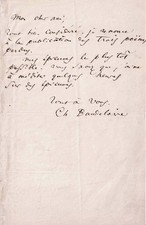 Mon cher ami,
Tout bien considéré, je renonce
à la publication des trois poèmes
perdus.
mes épreuves le plus tôt
possible. vous savez que j'aime
à méditer quelques heures
sur les épreuves.
Tout à vous.
Ch Baudelaire